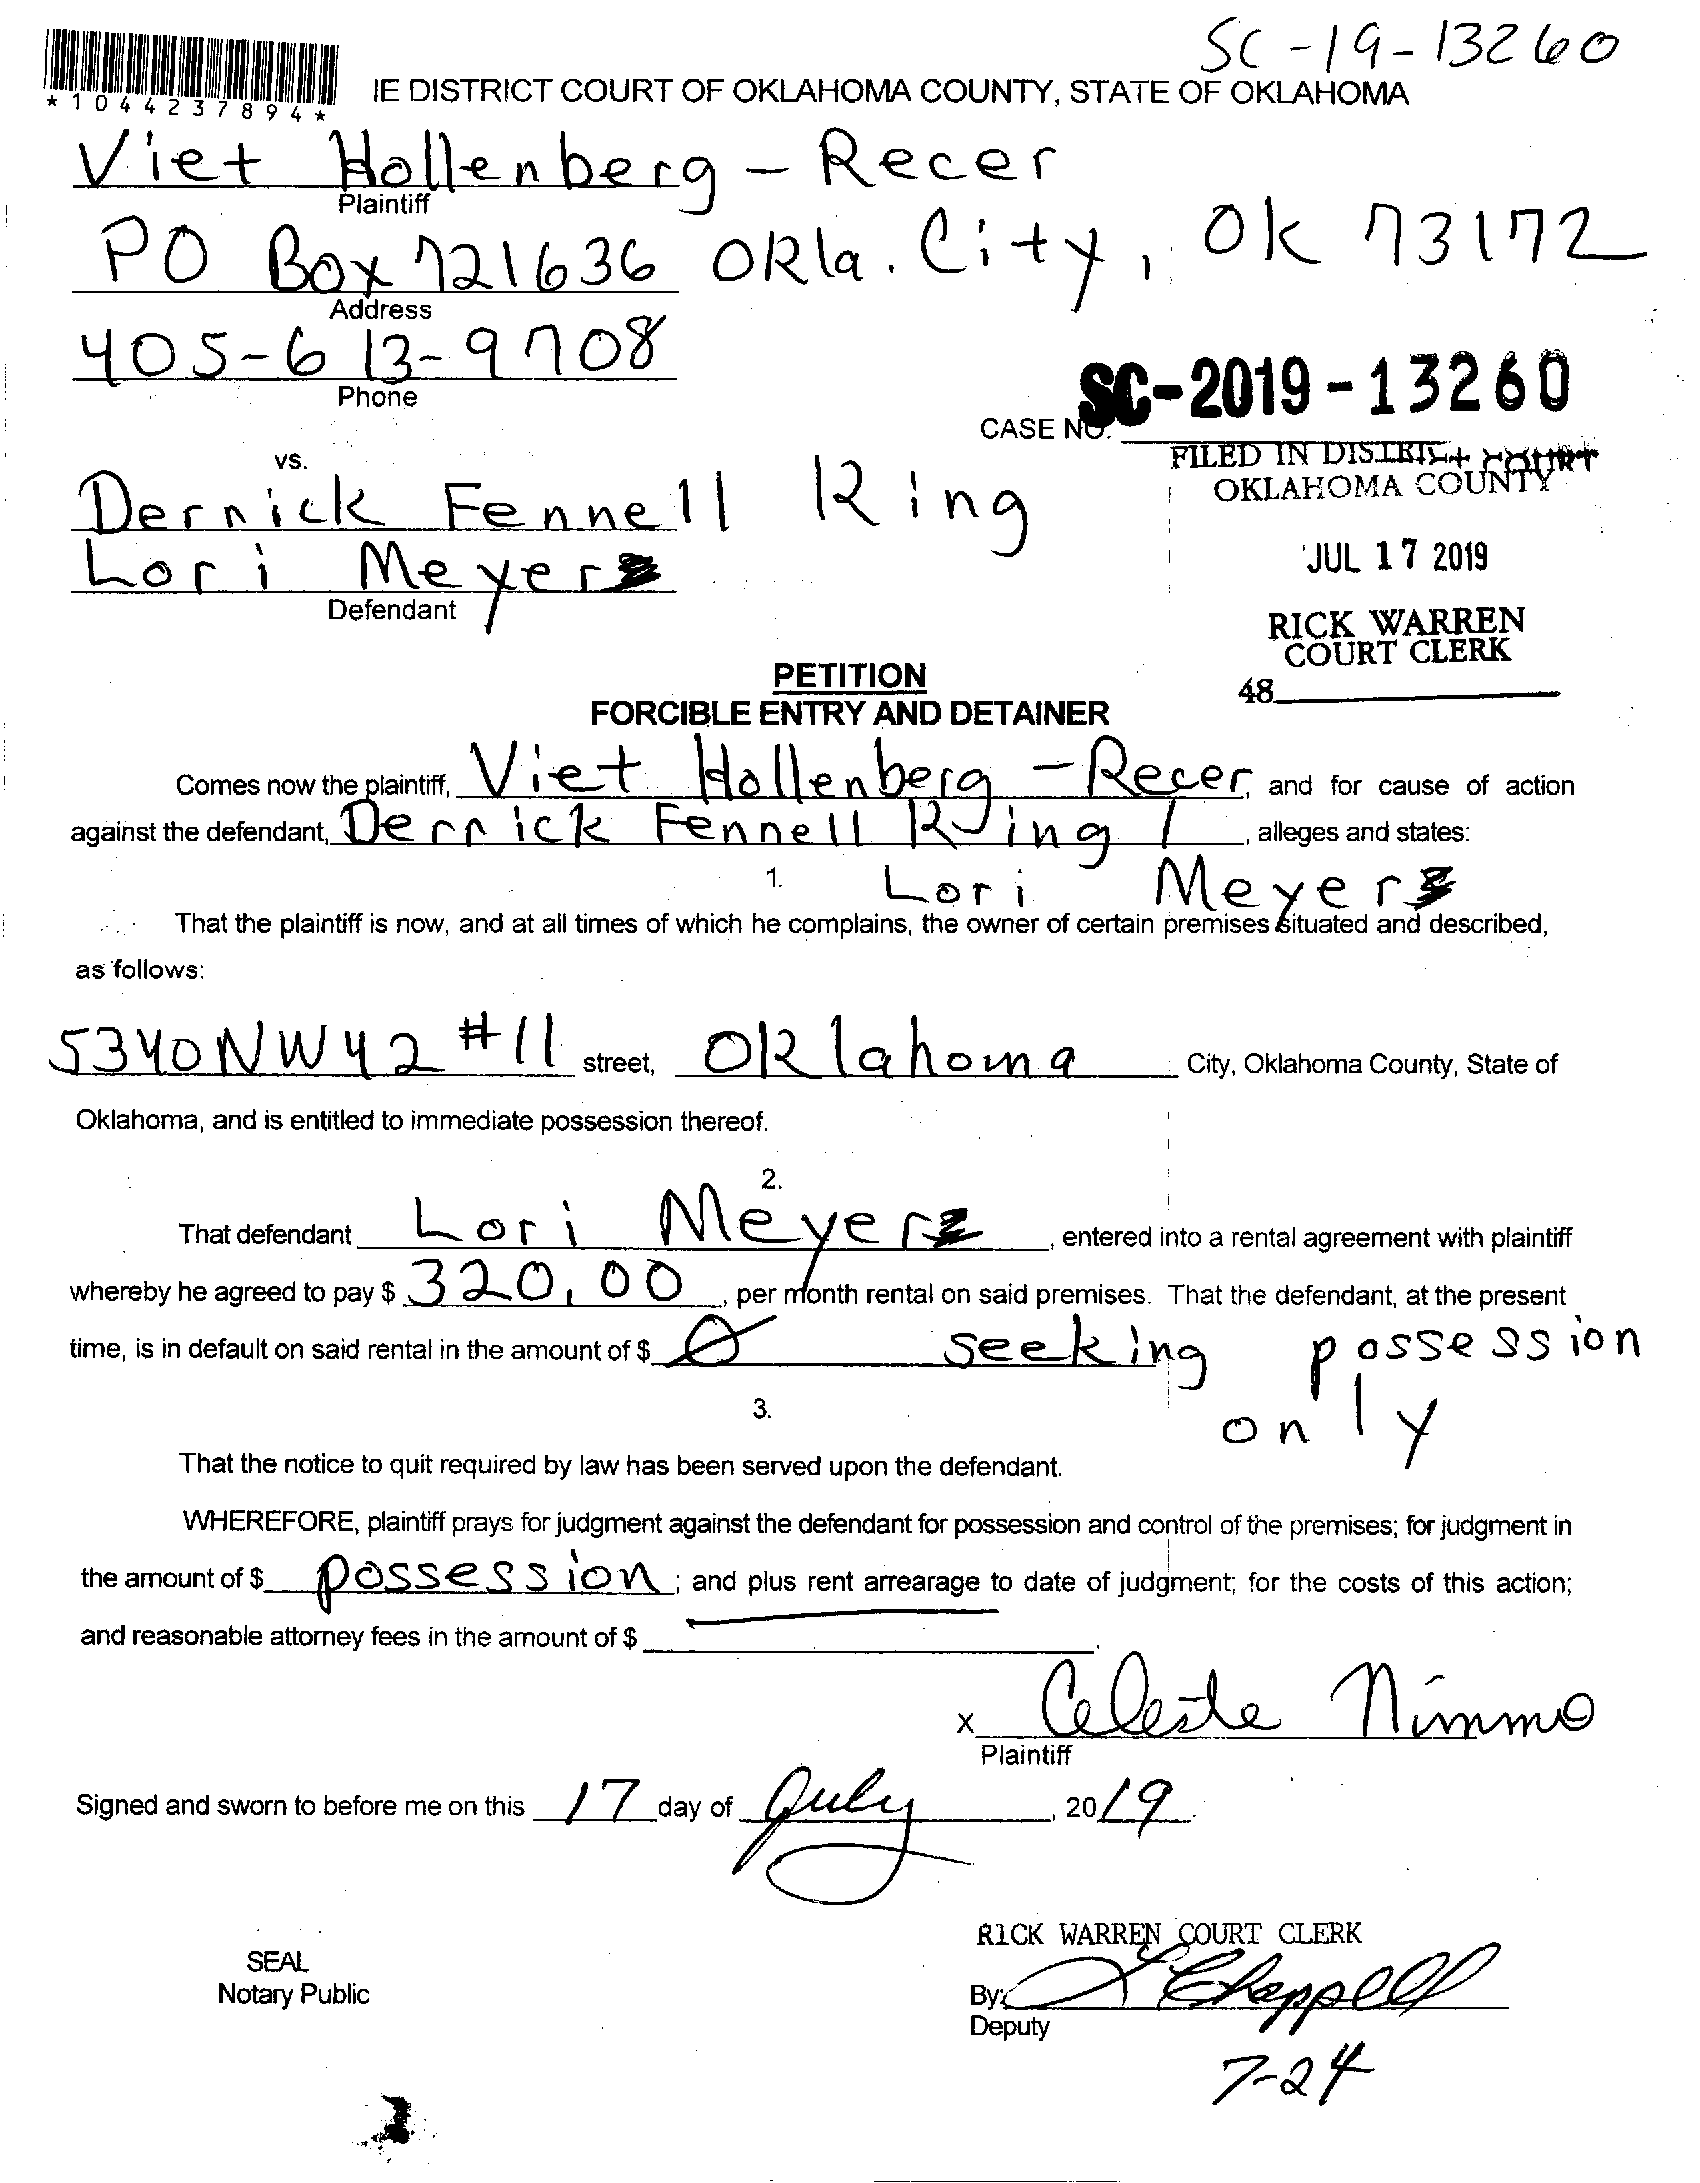 SC-19-13260
*1044237894*
IE DISTRICT COURT OF OKLAHOMA COUNTY, STATE OF OKLAHOMA
Viet Hollenberg - Recer
Plaintiff
PO Box 721636 Okla. City, Ok 73172
Address
405-613-9708
Phone
CASE NO. SC-2019-13260
vs.
FILED IN DISTRICT COURT
OKLAHOMA COUNTY
Dernick Fennell King
JUL 17 2019
Lori Meyer
Defendant
RICK WARREN
COURT CLERK
48
PETITION
FORCIBLE ENTRY AND DETAINER
Comes now the plaintiff, Viet Hollenberg - Recer, and for cause of action
against the defendant, Derrick Fennell King /, alleges and states:
1. Lori Meyer
That the plaintiff is now, and at all times of which he complains, the owner of certain premises situated and described,
as follows:
5340 NW 42 #11 street, Oklahoma City, Oklahoma County, State of
Oklahoma, and is entitled to immediate possession thereof.
2.
That defendant Lori Meyer, entered into a rental agreement with plaintiff
whereby he agreed to pay $ 320.00, per month rental on said premises. That the defendant, at the present
time, is in default on said rental in the amount of $ 0 seeking possession
only
3.
That the notice to quit required by law has been served upon the defendant.
WHEREFORE, plaintiff prays for judgment against the defendant for possession and control of the premises; for judgment in
the amount of $ possession; and plus rent arrearage to date of judgment; for the costs of this action;
and reasonable attorney fees in the amount of $
x Celeste Nimmo
Plaintiff
Signed and sworn to before me on this 17 day of July, 2019.
RICK WARREN COURT CLERK
SEAL
Notary Public
By: L Chappell
Deputy
7-24